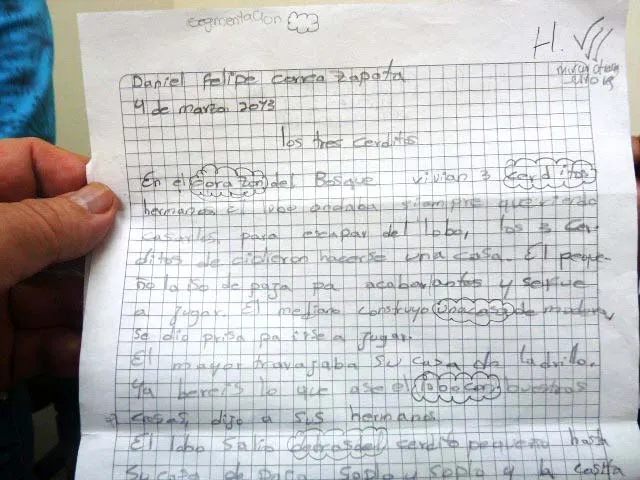 segmentacion
H.
Daniel Felipe Correa Zapata
4 de marzo 2013
los tres cerditos
En el corazon del Bosque vivian 3 cerditos
hermanos. El lobo andaba siempre queriendo
casarlos, para escapar del lobo, los 3 cer
ditos de cidieron hacerse una casa. El peque-
ño la iso de paja pa acabar antes y serve
a jugar. El mediano construyo unacasa de madera,
se dio prisa pa irse a jugar.
El mayor travajaba su casa de ladrillo.
Ya bereis lo que ase el lobo con buestras
casas, dijo a sus hermanos.
El lobo salio detrasdel cerdito pequeño hasta
su casa de paja soplo y soplo y la casita